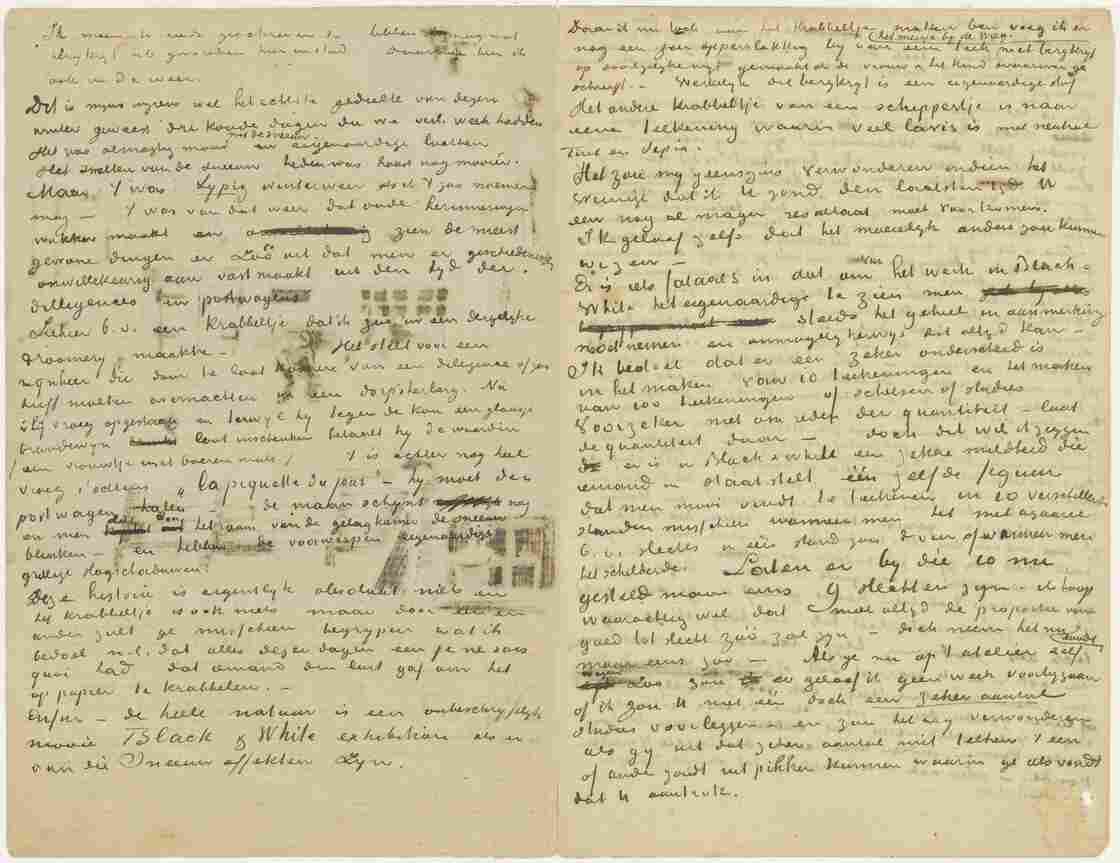 Ik meen te reede geschreven te hebben
ook in de weer.
Dit is myns inziens wel het echtste gedeelte van dezen
winter geweest die koude dagen die we verl. week hadden
Het was almagtig mooi met de sneeuw en eigenaardige luchten
Het smelten van de sneeuw heden was haast nog mooier.
Maar 't was typiq winterweer als ik 't zoo noemen
mag – 't was van dat weer dat oude herinneringen
wakker maakt en zien de meest
gewone dingen er zoo uit dat men er geschiedenissen
onwillekeurig aan vastmaakt uit den tyd der
dilligences en postwagens
Ziehier b.v. een krabbeltje dat ik zoo in een dergelyke
droomery maakte – Het stelt voor een
mynheer die door te laat komen van een diligence of zoo
heeft moeten overnachten in een dorpsherberg. Nu
is hy vroeg opgestaan en terwyl hy tegen de kou een glaasje
brandewyn laat inschenken betaalt hy de waardin
(een vrouwtje met boeren muts) 't is echter nog heel
vroeg s'odtens „la piquette du jour" – hy moet den
postwagen halen – de maan schynt nog
en men het raam van de gelagkamer de sneeuw
blinken – en hebben de voorwerpen eigenaardige
grillige slagschaduwen
Deze historie is eigentlyk absoluut niets en
het krabbeltje is ook niets maar door een
ander zult ge misschien begrypen wat ik
bedoel n.l. dat alles dezer dagen een je ne sais
quoi had dat iemand den lust gaf om het
op papier te krabbelen. –
Enfin – de heele natuur is een onbeschryfelyk
mooie Black & White exhibition als er
van die Sneeuw effekten zyn.
Daar ik nu toch aan het krabbeltjes maken ben voeg ik er
(het meisje by de wieg.)
nog een zeer oppervlakkig by van een teek met bergkryt
de vrouw & het kind waarvan ge
schreeft. – Werkelyk dit bergkryt is een eigenaardige stof
Het andere krabbeltje van een schippertje is naar
eene teekening waarin veel lavis is met neutral
tint en sepia.
Het zou my geenszins verwonderen indien het
weinige dat ik U zond den laatsten tyd U
een nog al mager resultaat moet voorkomen.
Ik geloof zelfs dat het moeielyk anders zou kunnen
wezen –
Er is iets fataals in dat om van het werk in Black &
White het eigenaardige te zien men
steeds het geheel in aanmerking
moet nemen en onmogelykerwys dit altyd kan –
Ik bedoel dat er een zeker onderscheid is
in het maken van 10 teekeningen en het maken
van 100 teekeningen of schetsen of studies
Voorzeker niet om reden der quantiteit – laat
de quantiteit daar – doch dit wil ik zeggen
er is in Black & White een zekere mildheid die
iemand in staat stelt één zelfde figuur
dat men mooi vindt te teekenen in 10 verschillende
standen misschien wanneer men het met aquarel
b.v. slechts in één stand zou doen of wanneer men
het schilderde. Laten er by die 10 nu
gesteld maar eens 9 slechten zyn – ik hoop
waarachtig wel dat niet altyd de proportie van
goed tot slecht zoo zal zyn – doch neem het nu
maar eens zoo – Als ge nu op 't atelier zelf
zou er geloof ik geen week voorbygaan
of ik zou U niet één doch een zeker aantal
studies voorleggen – en zou het my verwonderen
als gy uit dat zeker aantal niet telkens 't een
of ander zoudt uitpikken kunnen waarin ge iets vondt
dat U aantrok.